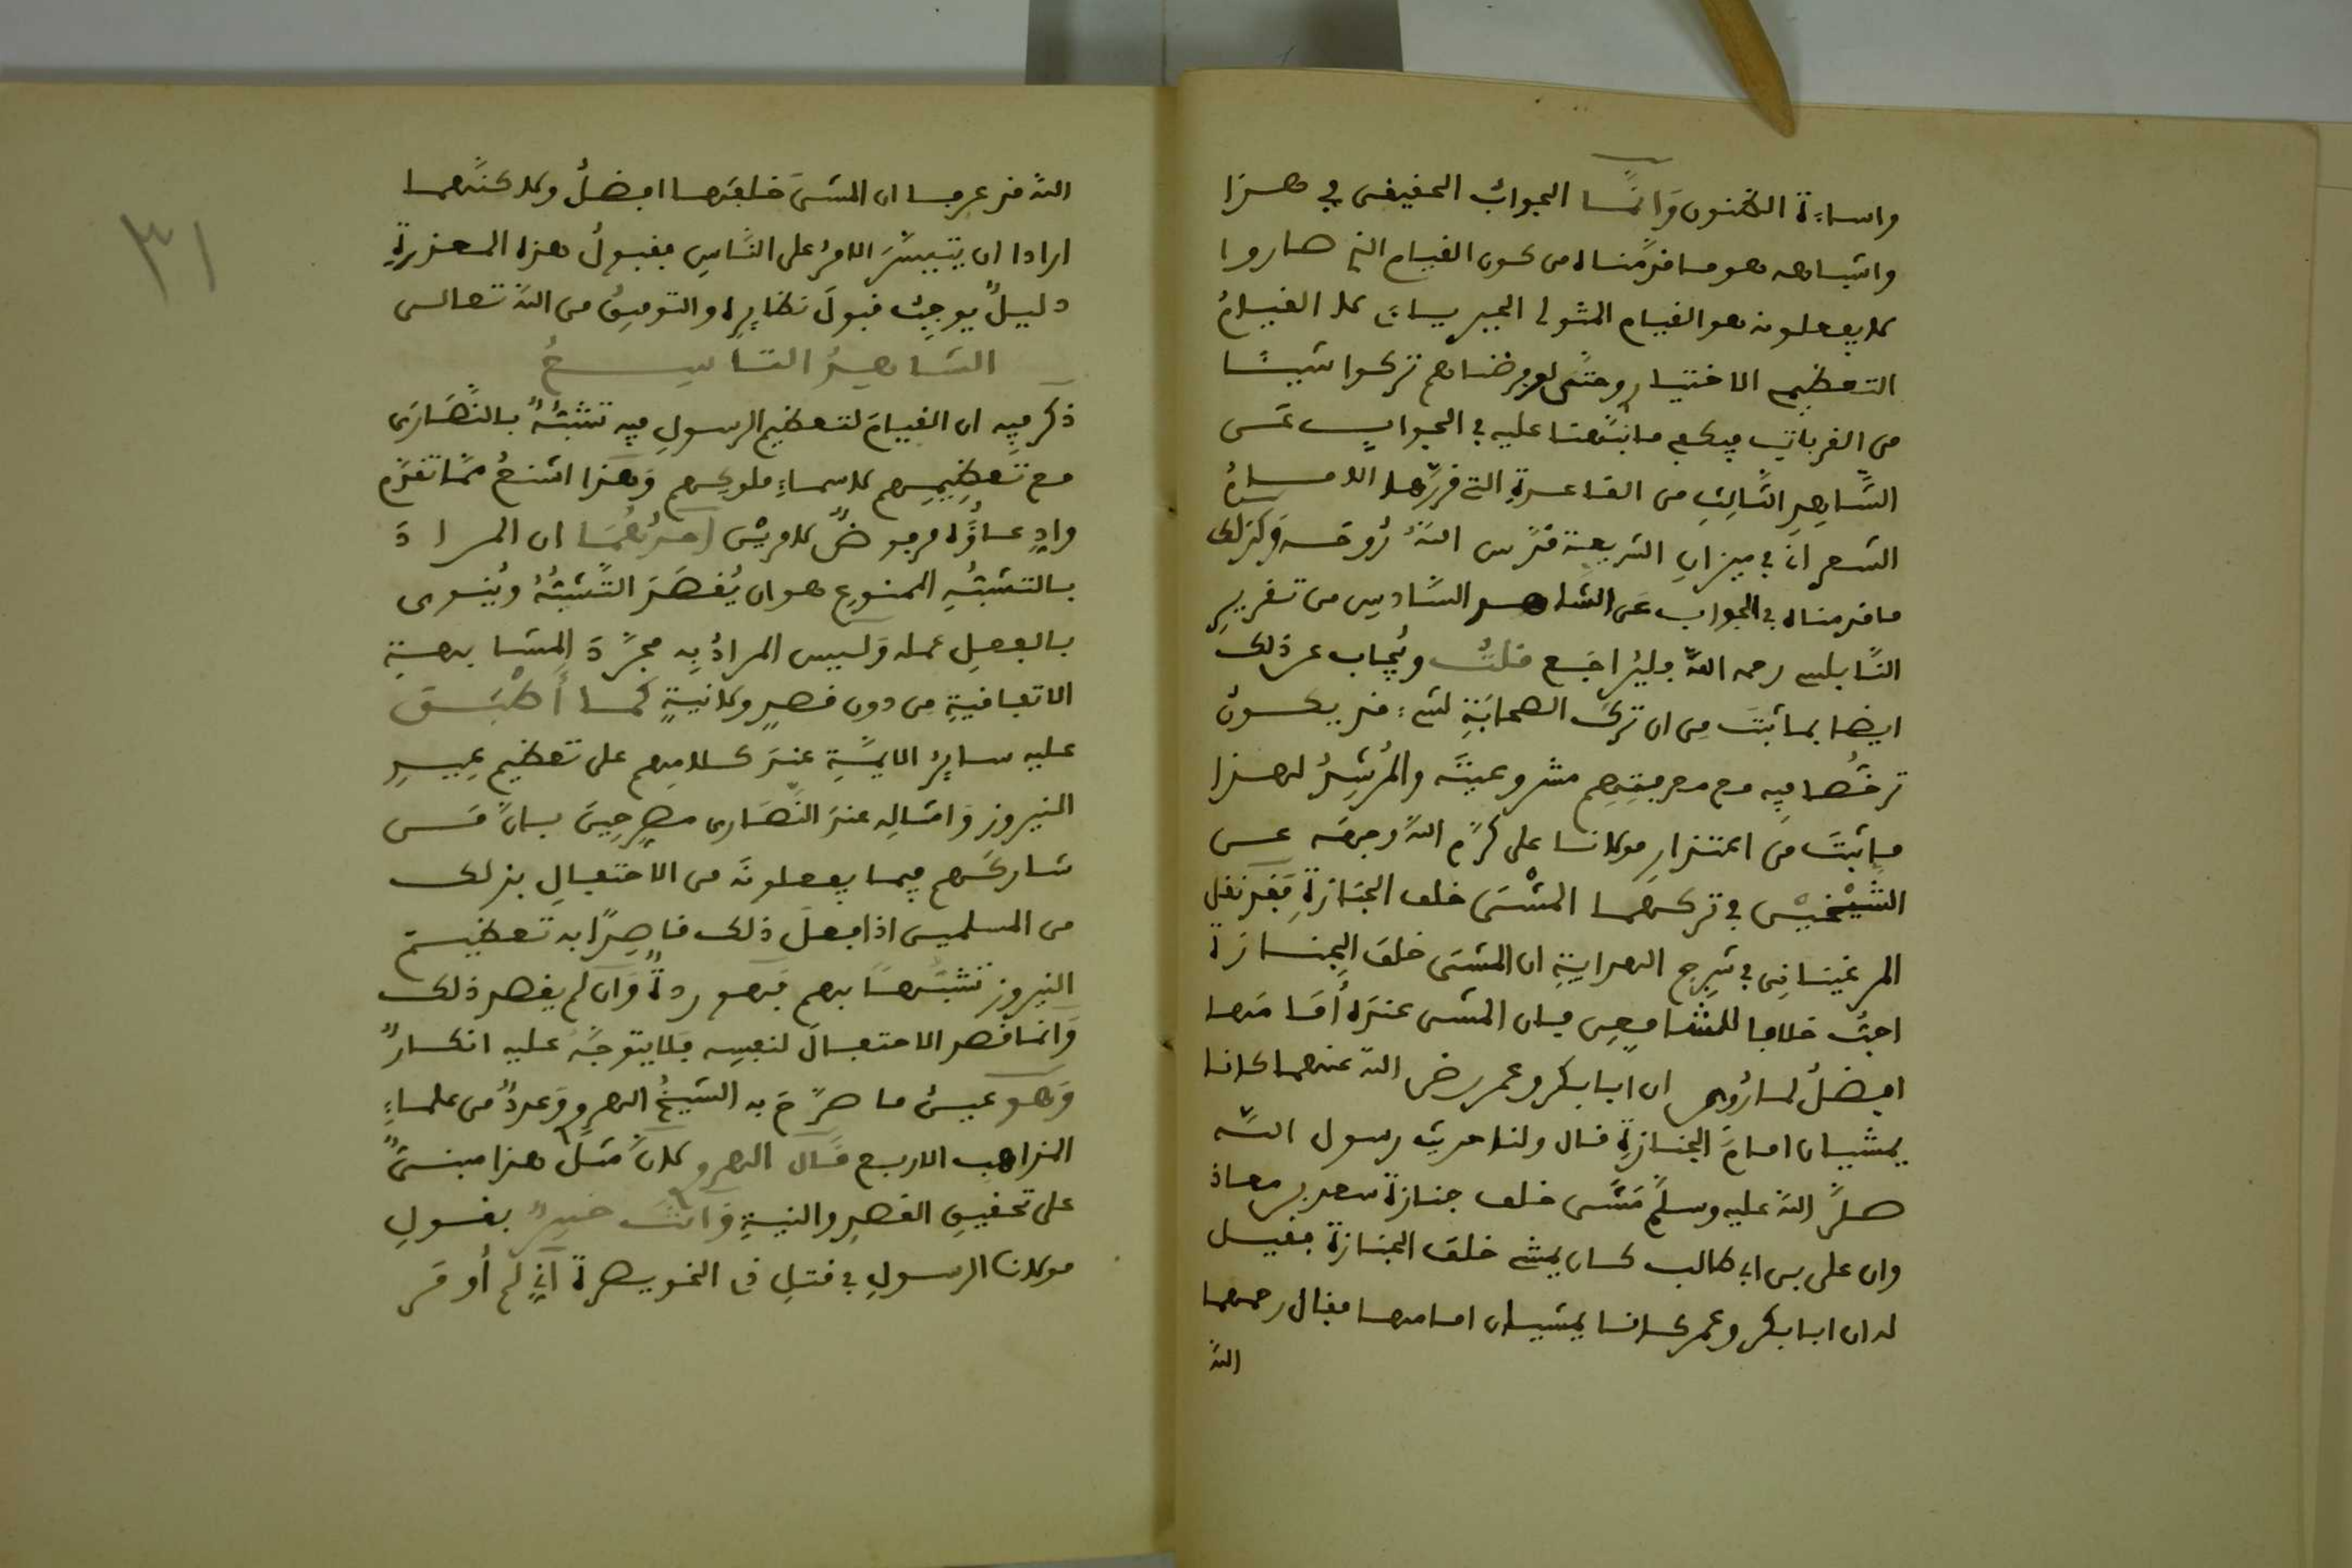 واساءة الظنون وانما الجواب الحقيقي في هذا
واشباهه هو ما قدمناه من كون القيام الذي صاروا
لا يفعلونه هو القيام المثولي الجبريان لا القيام
التعظيم الاختيار وحتى لو فرضناهم تركوا شيئا
من القربات فيكفي ما نبهنا عليه في الجواب عن
الشاهد الثالث من القاعدة التي قررها الامام
الشعراني في ميزان الشريعة قدس الله روحه وكذلك
ما قدمناه في الجواب عن الشاهد السادس من تقرير
النابلسي رحمه الله فليراجع قلت ويجاب عن ذلك
ايضا بما ثبت من ان ترك الصحابة لشيء قد يكون
ترخصا فيه مع معرفتهم مشروعيته والمرشد لهذا
ما ثبت من اعتذار مولانا علي كرم الله وجهه عن
الشيخين في تركهما المشي خلف الجنازة فقد نقل
المرغيناني في شرح الهداية ان المشي خلف الجنازة
احب خلافا للشافعي فان المشي عنده أمامها
افضل لما روي ان ابا بكر وعمر رضي الله عنهما كانا
يمشيان امام الجنازة قال ولنا حديث رسول الله
صلى الله عليه وسلم مشى خلف جنازة سعد بن معاذ
وان علي بن ابي طالب كان يمشي خلف الجنازة فقيل
له ان ابا بكر وعمر كانا يمشيان امامها فقال رحمهما
الله
٣١
الله قد عرفا ان المشي خلفها افضل ولاكنهما
ارادا ان يتيسر الامر على الناس فقبول هذه المعذرة
دليل يوجب قبول نظايره والتوفيق من الله تعالى
الشاهد التاسع
ذكر فيه ان القيام لتعظيم الرسول فيه تشبه بالنصارى
مع تعظيمهم لاسماء ملوكهم وهذا اشنع مما تقدم
وادعاؤه مرفوض لامرين احدهما ان المراد
بالتشبه الممنوع هو ان يقصد التشبه وينوى
بالفعل عمله وليس المراد به مجرد المشابهة
الاتفاقية من دون قصد ولانية كما أطبق
عليه سائر الايمة عند كلامهم على تعظيم عيد
النيروز وامثاله عند النصارى مصرحين بان من
شاركهم فيما يفعلونه من الاحتفال بذلك
من المسلمين اذا فعل ذلك قاصدا به تعظيم
النيروز تشبها بهم فهو ردة وان لم يقصد ذلك
وانما قصد الاحتفال لنفسه فلا يتوجه عليه انكار
وهو عين ما صرح به الشيخ الدهر وعدد من علماء
المذاهب الاربع قال الدهر ولان مثل هذا مبني
على تحقيق القصد والنية وانت خبير بقول
مولانا الرسول في قتل ذي الخويصرة اني لم أومر